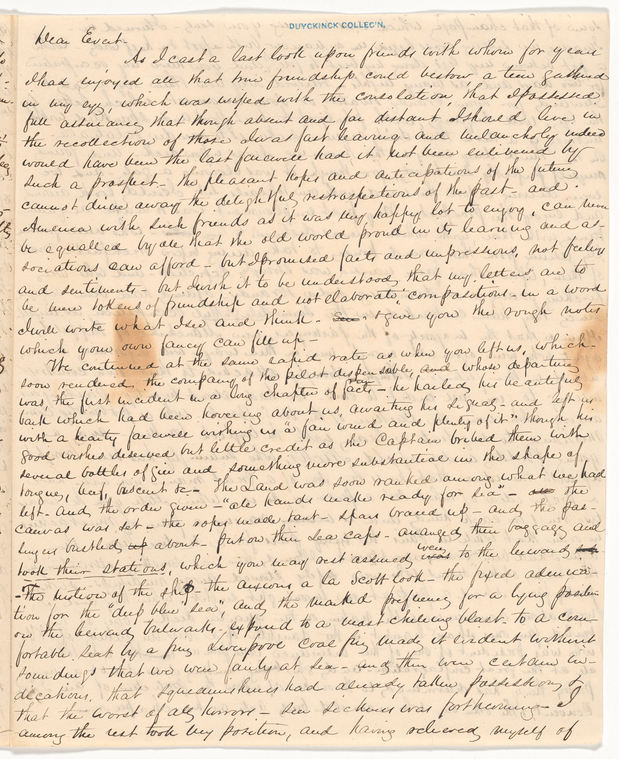 DUYCKINCK COLLEC'N.
Dear Evert.
As I cast a last look upon friends with whom for years
I had enjoyed all that true friendship could bestow a tear gathered
in my eye, which was wiped with the consolation, that I possessed
full assurance that though absent and far distant I should live in
the recollection of those I was fast leaving - and melancholy indeed
would have been the last farewell had it not been enlivened by
such a prospect - the pleasant hopes and anticipations of the future
cannot drive away the delightful retrospections of the past - and
America with such friends as it was my happy lot to enjoy, can
be equalled by all that the old world proud in its learning and as-
sociations can afford - but I promised facts and impressions, not feelings
and sentiments - but I wish it to be understood that my letters are to
be mere tokens of friendship and not elaborate compositions - in a word
I will write what I see and think - & give you the rough notes
which your own fancy can fill up -
We continued at the same rapid rate as when you left us, which
soon rendered the company of the pilot dispensable, and whose departure
was the first incident in a long chapter of facts - he hailed his beautiful
bark which had been hovering about us, awaiting his signal - and left us
with a hearty farewell wishing us "a fair wind and plenty of it." though his
good wishes deserved but little credit as the Captain bribed them with
several bottles of gin and something more substantial in the shape of
tongue, beef, biscuit &c - The Land was soon ranked among what we had
left - And the order given - "all hands make ready for sea" - the
canvas was set - the ropes made taut - spars braced up - and the pas-
sengers bustled about - put on their sea caps - arranged their baggage and
took their stations, which you may rest assured were to the leeward
- The motion of the ship - the anxious a la Scott look - the fixed admira-
tion for the "deep blue sea", and the marked preference for a lying position
on the leeward bulwarks - exposed to a most chilling blast - to a com-
fortable seat by a fine Liverpool coal fire, made it evident without
soundings that we were fairly at sea - and there were certain in-
dications, that squeamishness had already taken possession &
that the worst of all horrors - sea sickness was forthcoming - I
among the rest took my position, and having relieved myself of